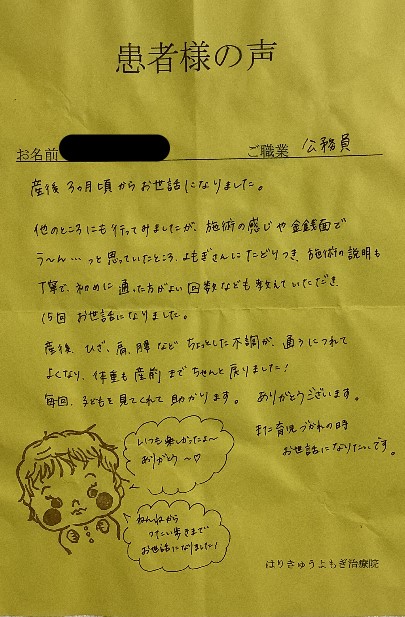 患者様の声
お名前 ご職業 公務員
産後3ヶ月頃からお世話になりました。
他のところにも行ってみましたが、施術の感じや金銭面で
う〜ん…っと思っていたところ、よもぎさんにたどりつき、施術の説明も
丁寧で、初めに通った方がよい回数なども教えていただき
15回お世話になりました。
産後、ひざ、肩、腰などちょっとした不調が、通うにつれて
よくなり、体重も産前までちゃんと戻りました!
毎回、子どもを見てくれて助かります。ありがとうございます。
また育児づかれの時
お世話になりたいです。
いつも楽しかったよ〜
ありがとう〜♡
ねんねから
つたい歩きまで
お世話になりました!
はりきゅうよもぎ治療院